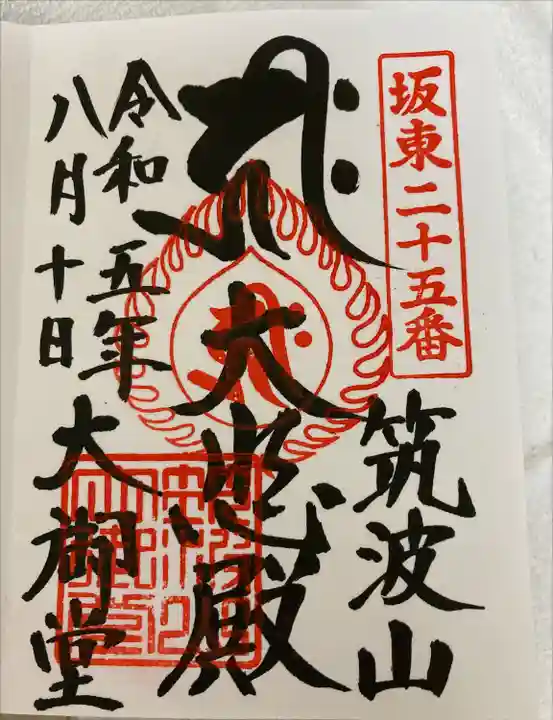 坂東二十五番
筑波山
𑖮𑖿𑖨𑖱𑖾
大悲殿
令和五年
八月十日
大御堂